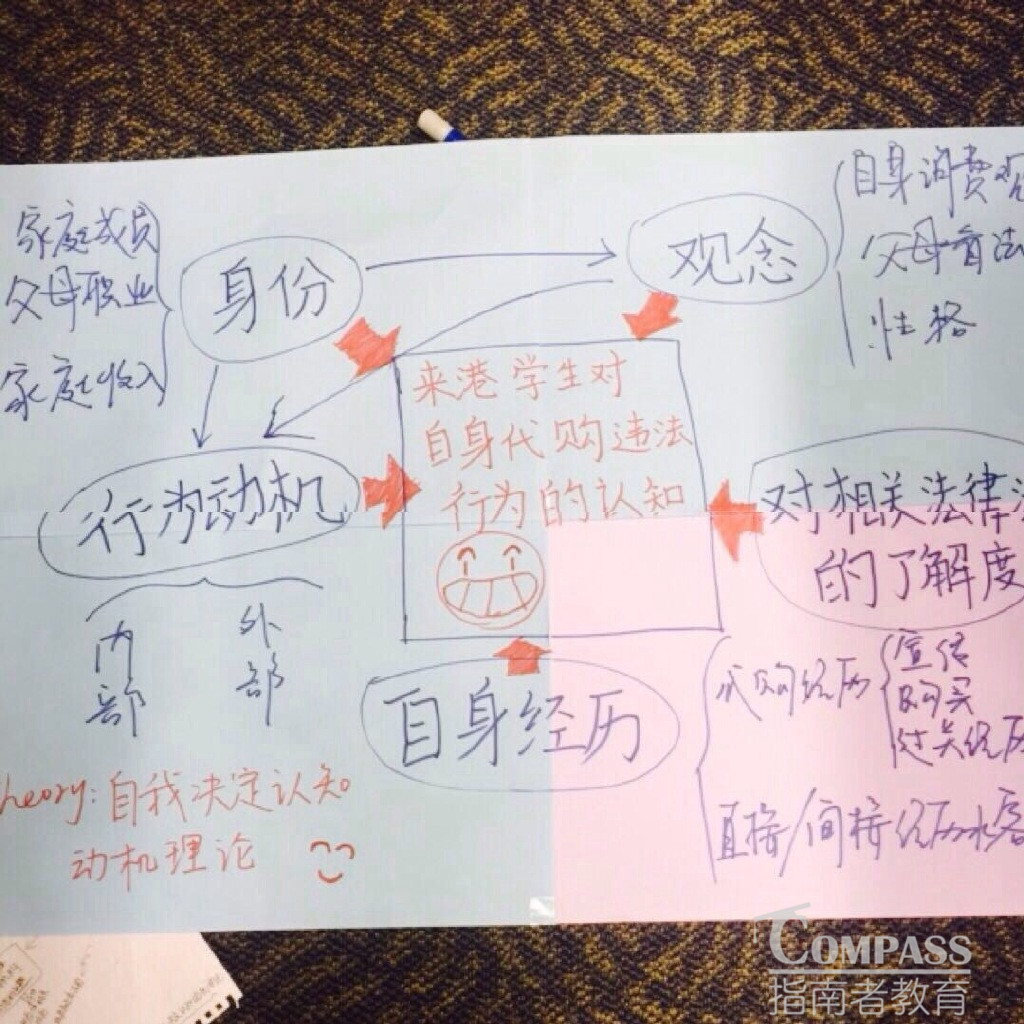 家庭成员
父母职业
家庭收入
身份
观念
自身消费观
父母看法
性格
来港学生对
自身代购违法
行为的认知
行为动机
内部
外部
对相关法律
的了解度
自身经历
代购经历
宣传
购买
过关经历
直接/间接经历水客
theory: 自我决定认知
动机理论
COMPASS
指南者教育